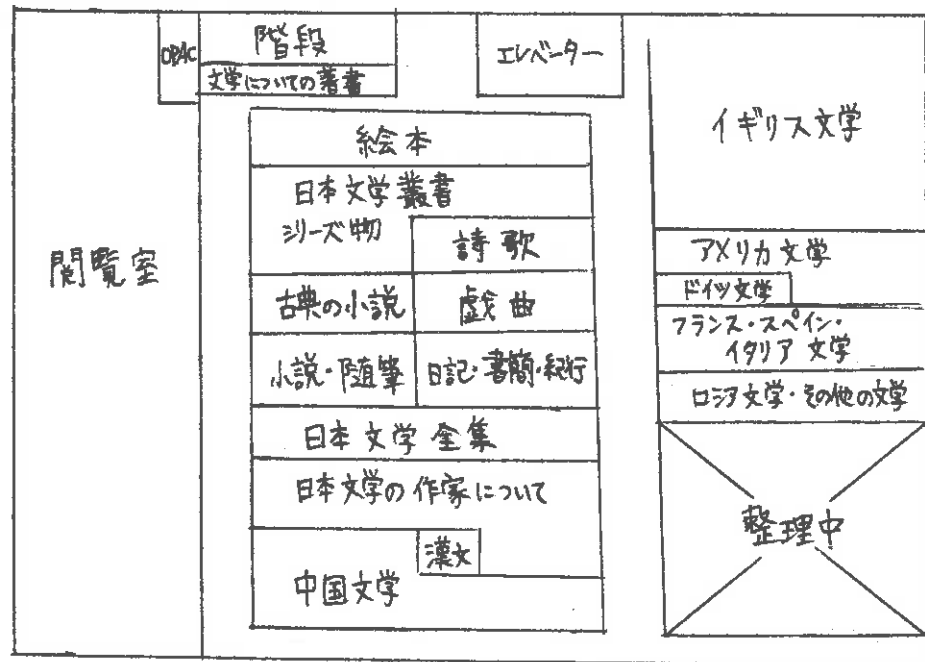 OPAC
階段
文学についての著書
エレベーター
閲覧室
絵本
日本文学叢書
シリーズ物
詩歌
古典の小説
戯曲
小説・随筆
日記・書簡・紀行
日本文学全集
日本文学の作家について
漢文
中国文学
イギリス文学
アメリカ文学
ドイツ文学
フランス・スペイン・
イタリア文学
ロシア文学・その他の文学
整理中